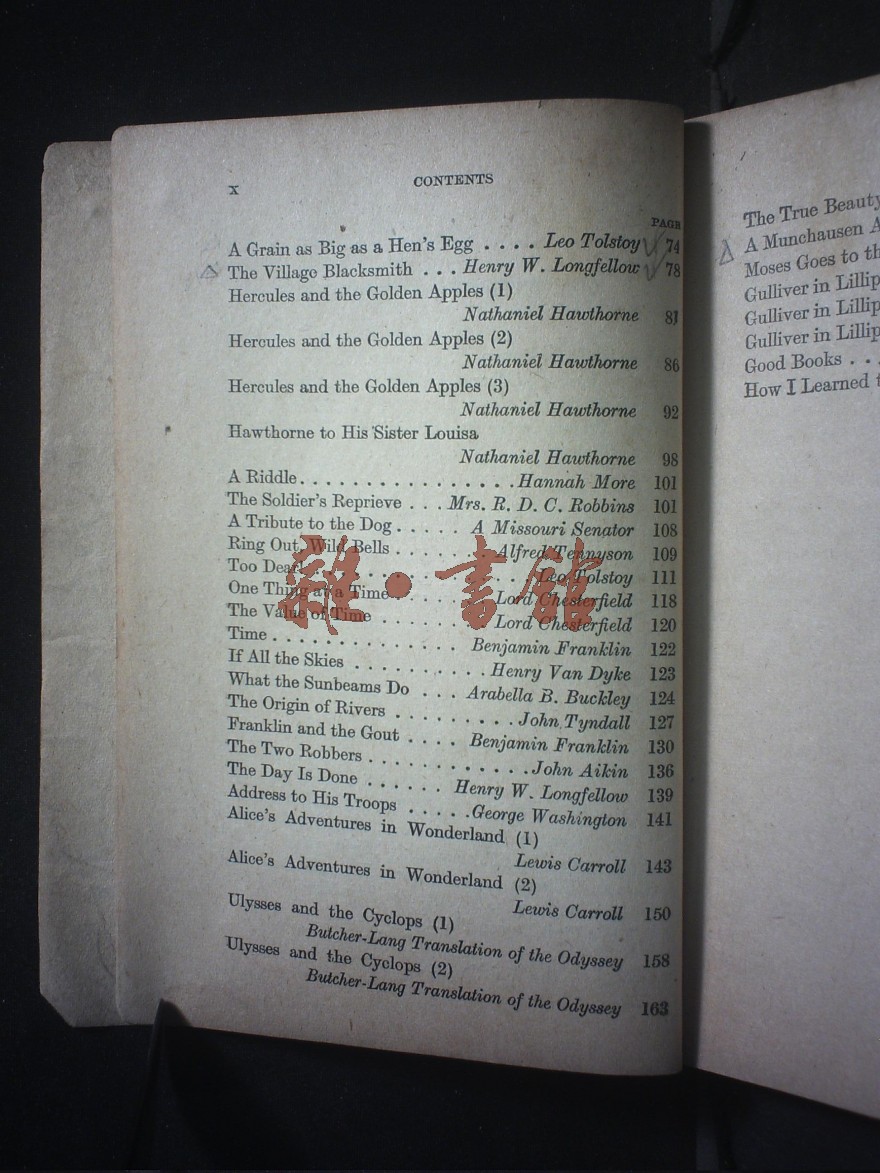 x
CONTENTS
PAGE
A Grain as Big as a Hen's Egg . . . . Leo Tolstoy 74
The Village Blacksmith . . . Henry W. Longfellow 78
Hercules and the Golden Apples (1)
Nathaniel Hawthorne 81
Hercules and the Golden Apples (2)
Nathaniel Hawthorne 86
Hercules and the Golden Apples (3)
Nathaniel Hawthorne 92
Hawthorne to His Sister Louisa
Nathaniel Hawthorne 98
A Riddle . . . . . . . . . . . . . . . . Hannah More 101
The Soldier's Reprieve . . . Mrs. R. D. C. Robbins 101
A Tribute to the Dog . . . . . A Missouri Senator 108
Ring Out, Wild Bells . . . . . . . Alfred Tennyson 109
Too Dear! . . . . . . . . . . . . . . Leo Tolstoy 111
One Thing at a Time . . . . . . . Lord Chesterfield 118
The Value of Time . . . . . . . Lord Chesterfield 120
Time . . . . . . . . . . . . . Benjamin Franklin 122
If All the Skies . . . . . . . . . . Henry Van Dyke 123
What the Sunbeams Do . . . Arabella B. Buckley 124
The Origin of Rivers . . . . . . . . . John Tyndall 127
Franklin and the Gout . . . . Benjamin Franklin 130
The Two Robbers . . . . . . . . . . . . John Aikin 136
The Day Is Done . . . . . . Henry W. Longfellow 139
Address to His Troops . . . . . George Washington 141
Alice's Adventures in Wonderland (1)
Lewis Carroll 143
Alice's Adventures in Wonderland (2)
Lewis Carroll 150
Ulysses and the Cyclops (1)
Butcher-Lang Translation of the Odyssey 158
Ulysses and the Cyclops (2)
Butcher-Lang Translation of the Odyssey 163
雜·書館
The True Beauty
A Munchausen A
Moses Goes to th
Gulliver in Lillip
Gulliver in Lillip
Gulliver in Lillip
Good Books . . .
How I Learned t